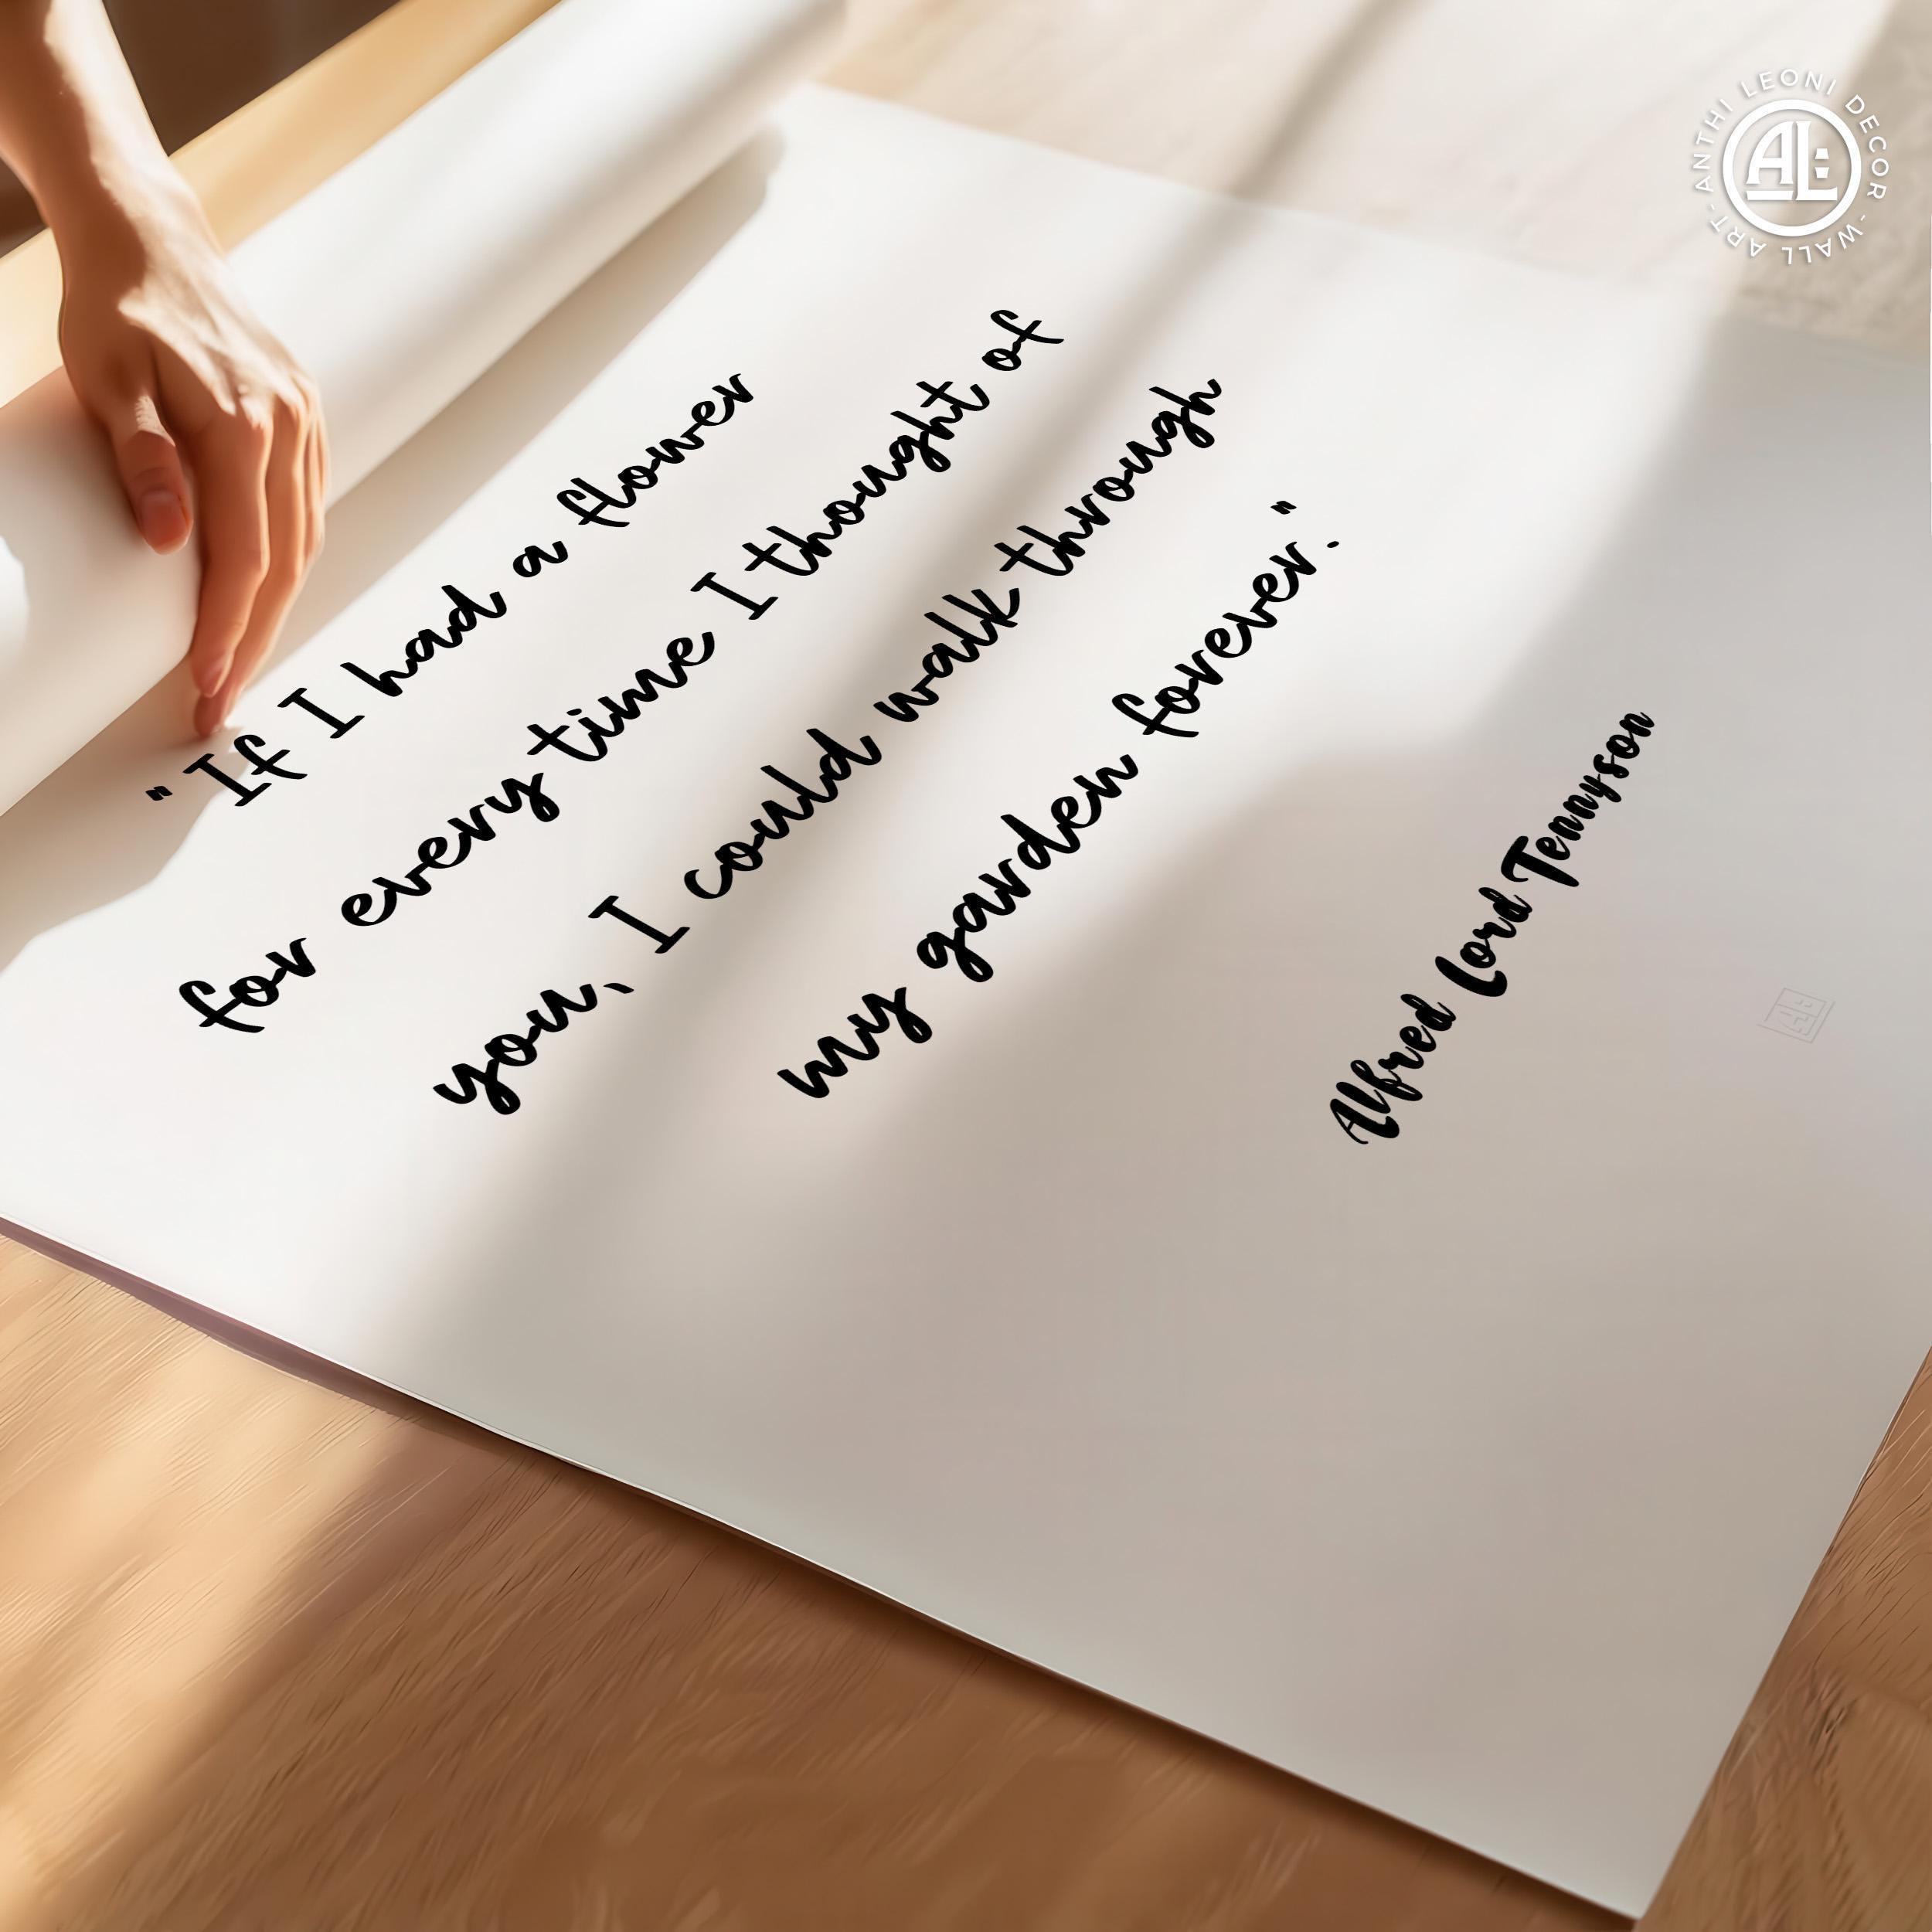 "If I had a flower
for every time I thought of
you, I could walk through
my garden forever."
Alfred Lord Tennyson
ANTHI LEONI DECOR - WALL ART -
AL